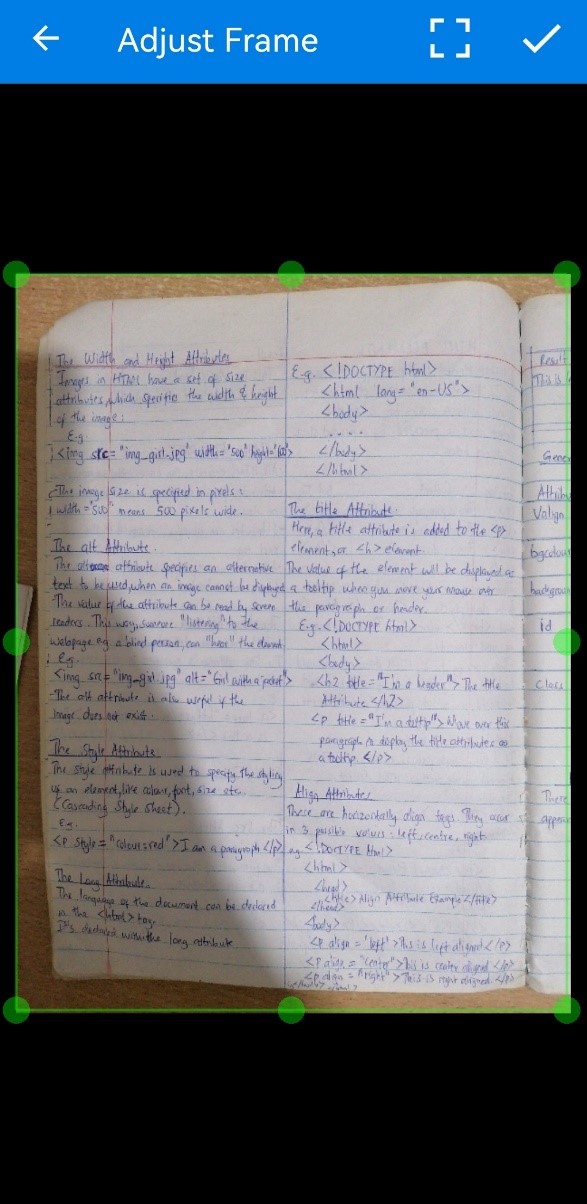 Adjust Frame
The Width and Height Attributes
Images in HTML have a set of size
attributes, which specifies the width & height
of the image:
E.g
<img src="img_girl.jpg" width="500" height="600">
The image size is specified in pixels:
width="500" means 500 pixels wide.
The alt Attribute.
The alt attribute specifies an alternative
text to be used, when an image cannot be displayed
The value of the attribute can be read by screen
readers. This way, someone "listening" to the
webpage e.g a blind person, can "hear" the element
E.g.
<img src="img_girl.jpg" alt="Girl with a jacket">
The alt attribute is also useful if the
image does not exist.
The Style Attribute
The style attribute is used to specify the styling
of an element, like colour, font, size etc.
(Cascading Style Sheet).
E.g.
<p style="colour:red">I am a paragraph</p>
The Lang Attribute.
The language of the document can be declared
in the <html> tag.
It's declared with the lang attribute
E.g. <!DOCTYPE html>
<html lang="en-US">
<body>
....
</body>
</html>
The title Attribute.
Here, a title attribute is added to the <p>
element, or <h> element.
The value of the element will be displayed as
a tooltip when you move your mouse over
the paragraph or header.
E.g. <!DOCTYPE html>
<html>
<body>
<h2 title="I'm a header"> The title
Attribute </h2>
<p title="I'm a tooltip"> Move over this
paragraph to display the title attributes as
a tooltip </p>
Align Attributes
These are horizontally align tags. They occur
in 3 possible values: left, centre, right.
e.g. <!DOCTYPE html>
<html>
<head>
<title>Align Attribute Example</title>
</head>
<body>
<p align="left">This is left aligned</p>
<p align="center">This is center aligned</p>
<p align="right">This is right aligned</p>
</body></html>
Result
This is
Gene
Attribu
Valign
bgcolour
backgrou
id
class
There
appear